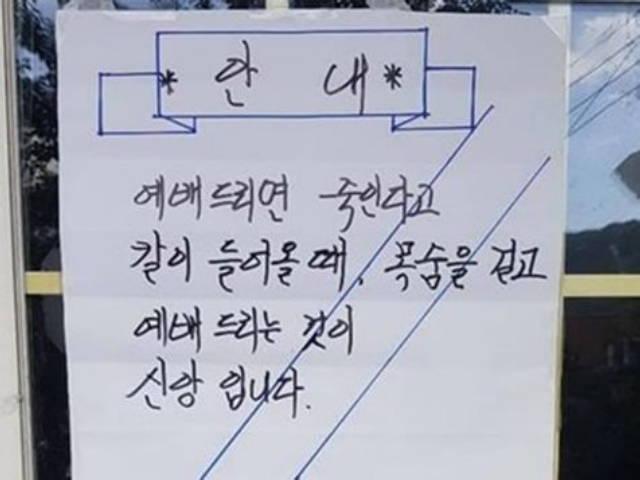 * 안 내 *
예배드리면 죽인다고
칼이 들어올때, 목숨을 걸고
예배드리는 것이
신앙 입니다.